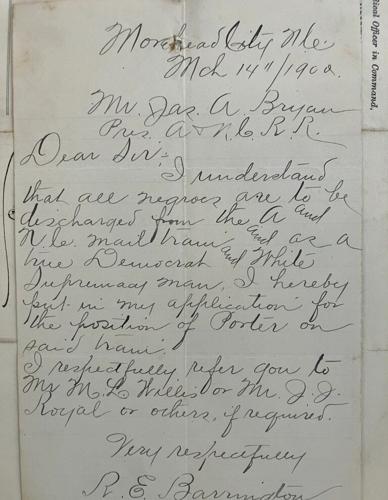 Morehead City N.C.
Mch 14"/1900.
Mr. Jas. A Bryan
Pres. A & N.C. R.R.
Dear Sir:
I understand
that all negroes are to be
discharged from the A and
N.C. mail train and as a
true Democrat and White
Supremacy man, I hereby
put in my application for
the position of Porter on
said train.
I respectfully refer you to
Mr M. L Willis or Mr. J. J.
Royal or others, if required.
Very respectfully
R. E. Barrington
Medical Officer in Command,